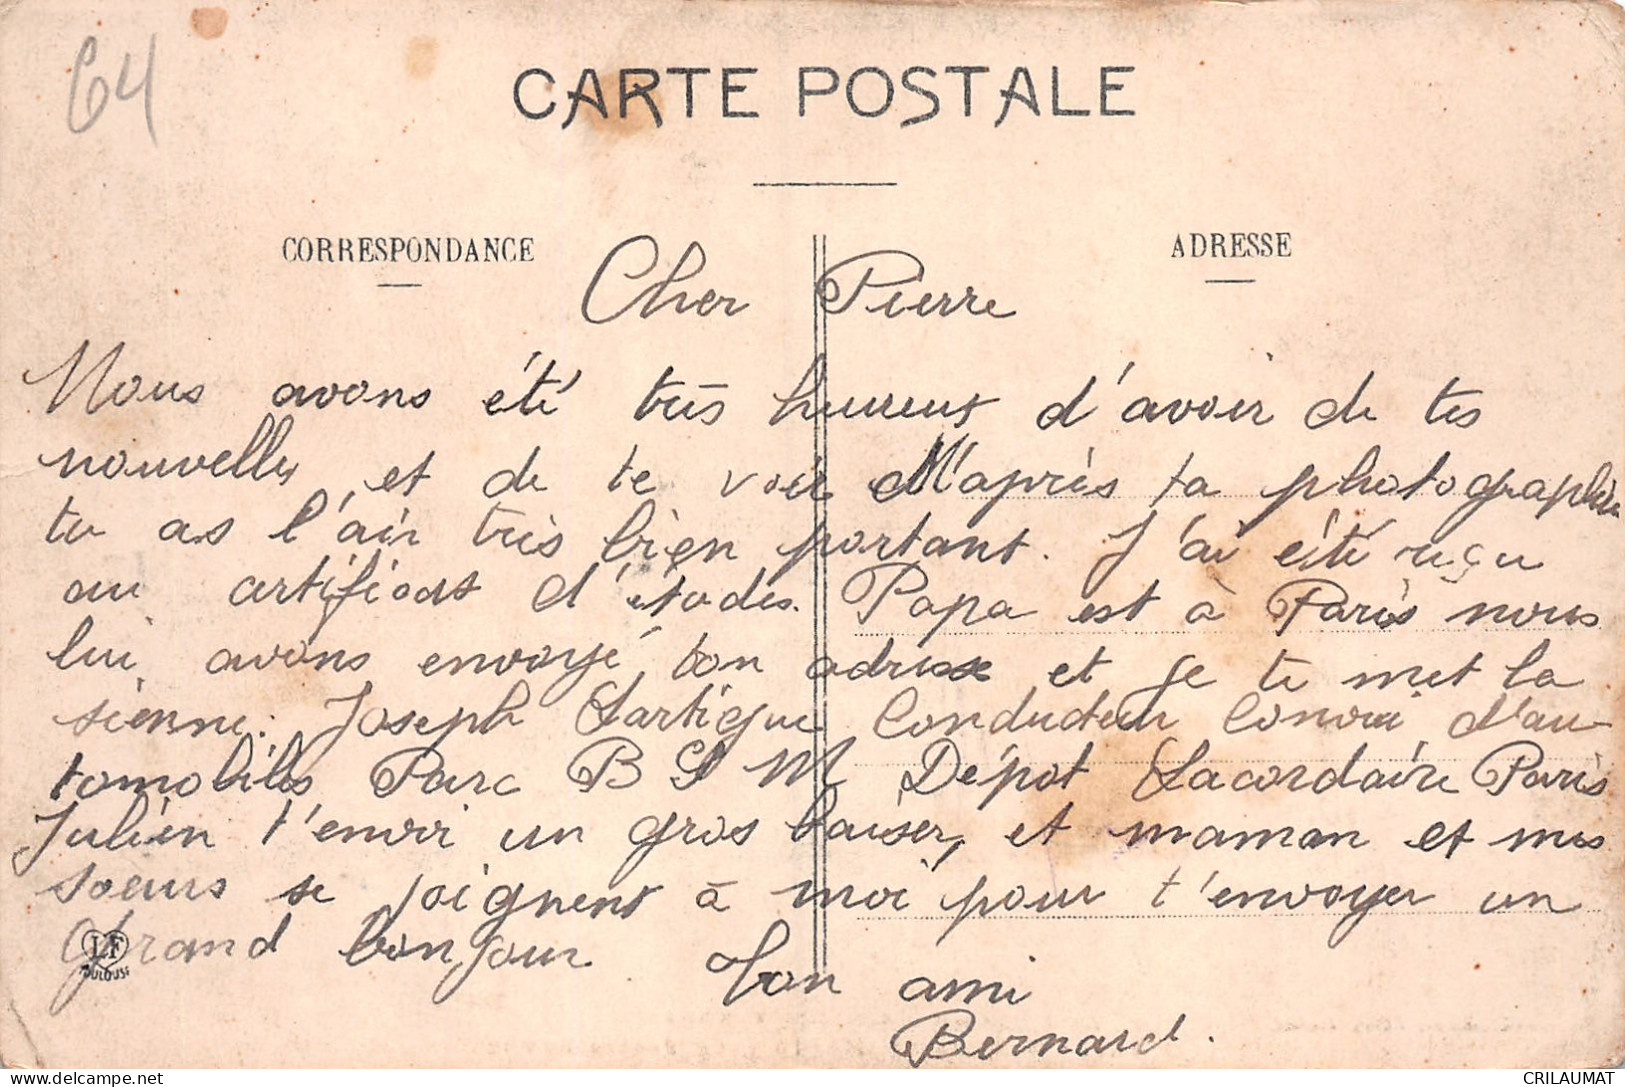 64
CARTE POSTALE
CORRESPONDANCE
ADRESSE
Cher Pierre
Nous avons été très heureux d'avoir de tes
nouvelles et de te voir D'après ta photographie
tu as l'air très bien portant. J'ai été reçu
au certificat d'études. Papa est à Paris nous
lui avons envoyé ton adresse et je te met la
sienne: Joseph Lartigue Conducteur Convoi d'au-
tomobiles Parc B S M Dépot Lacordaire Paris
Julien t'envoi un gros baiser, et maman et mes
soeurs se joignent à moi pour t'envoyer un
grand bonjour. Ton ami
Bernard.
LF
TOULOUSE
CRILAUMAT